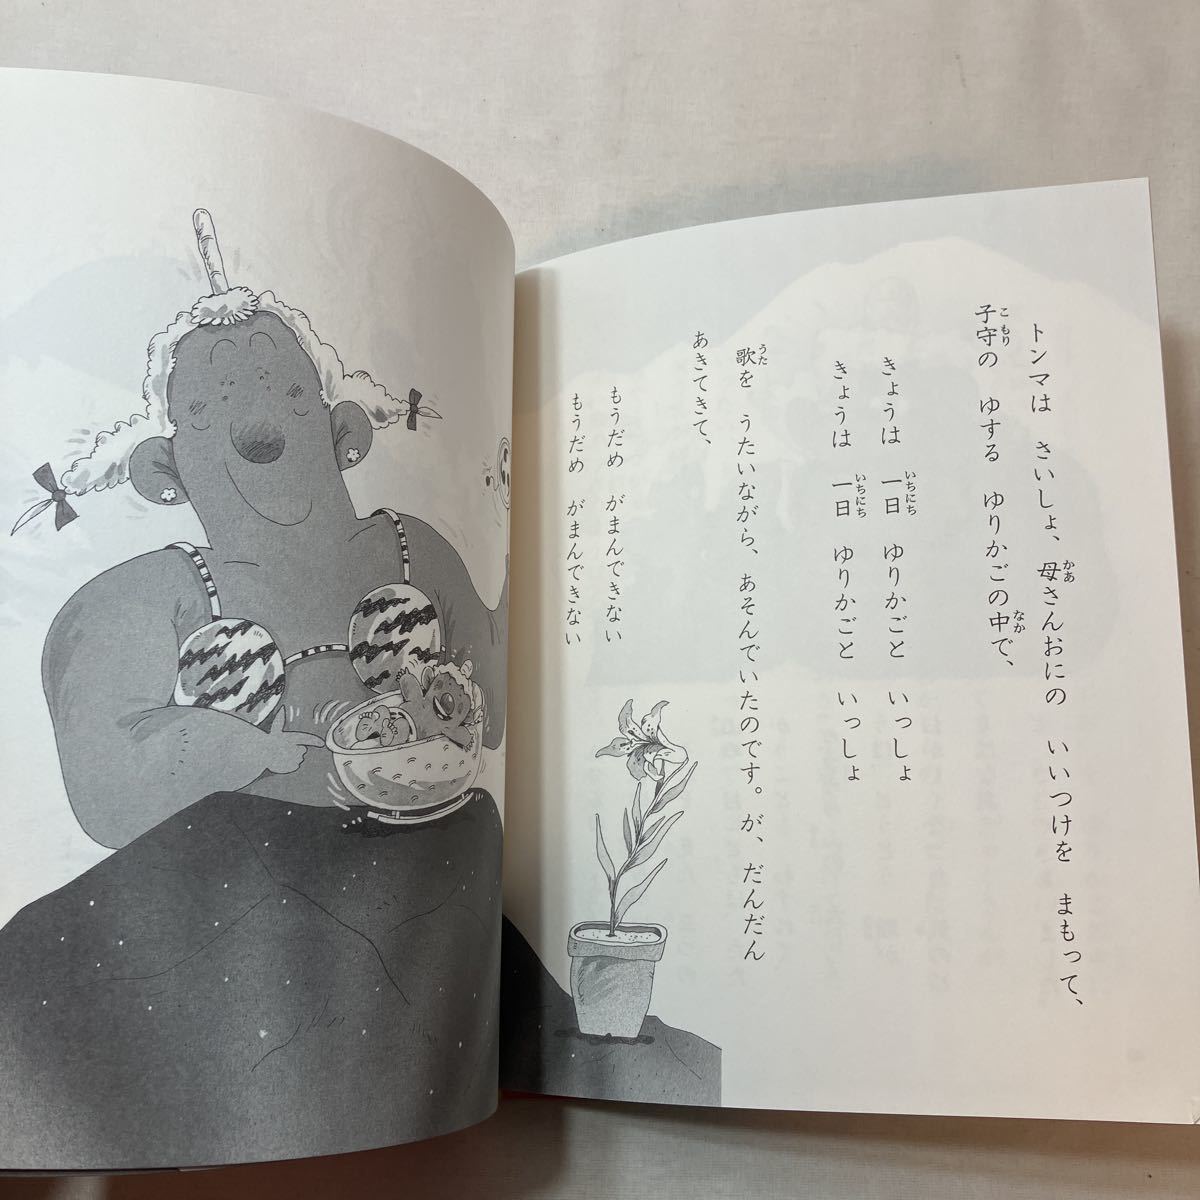 トンマは　さいしょ、母さんおにの　いいつけを　まもって、
子守の　ゆする　ゆりかごの中で、
きょうは　一日　ゆりかごと　いっしょ
きょうは　一日　ゆりかごと　いっしょ
歌を　うたいながら、あそんでいたのです。が、だんだん
あきてきて、
もうだめ　がまんできない
もうだめ　がまんできない